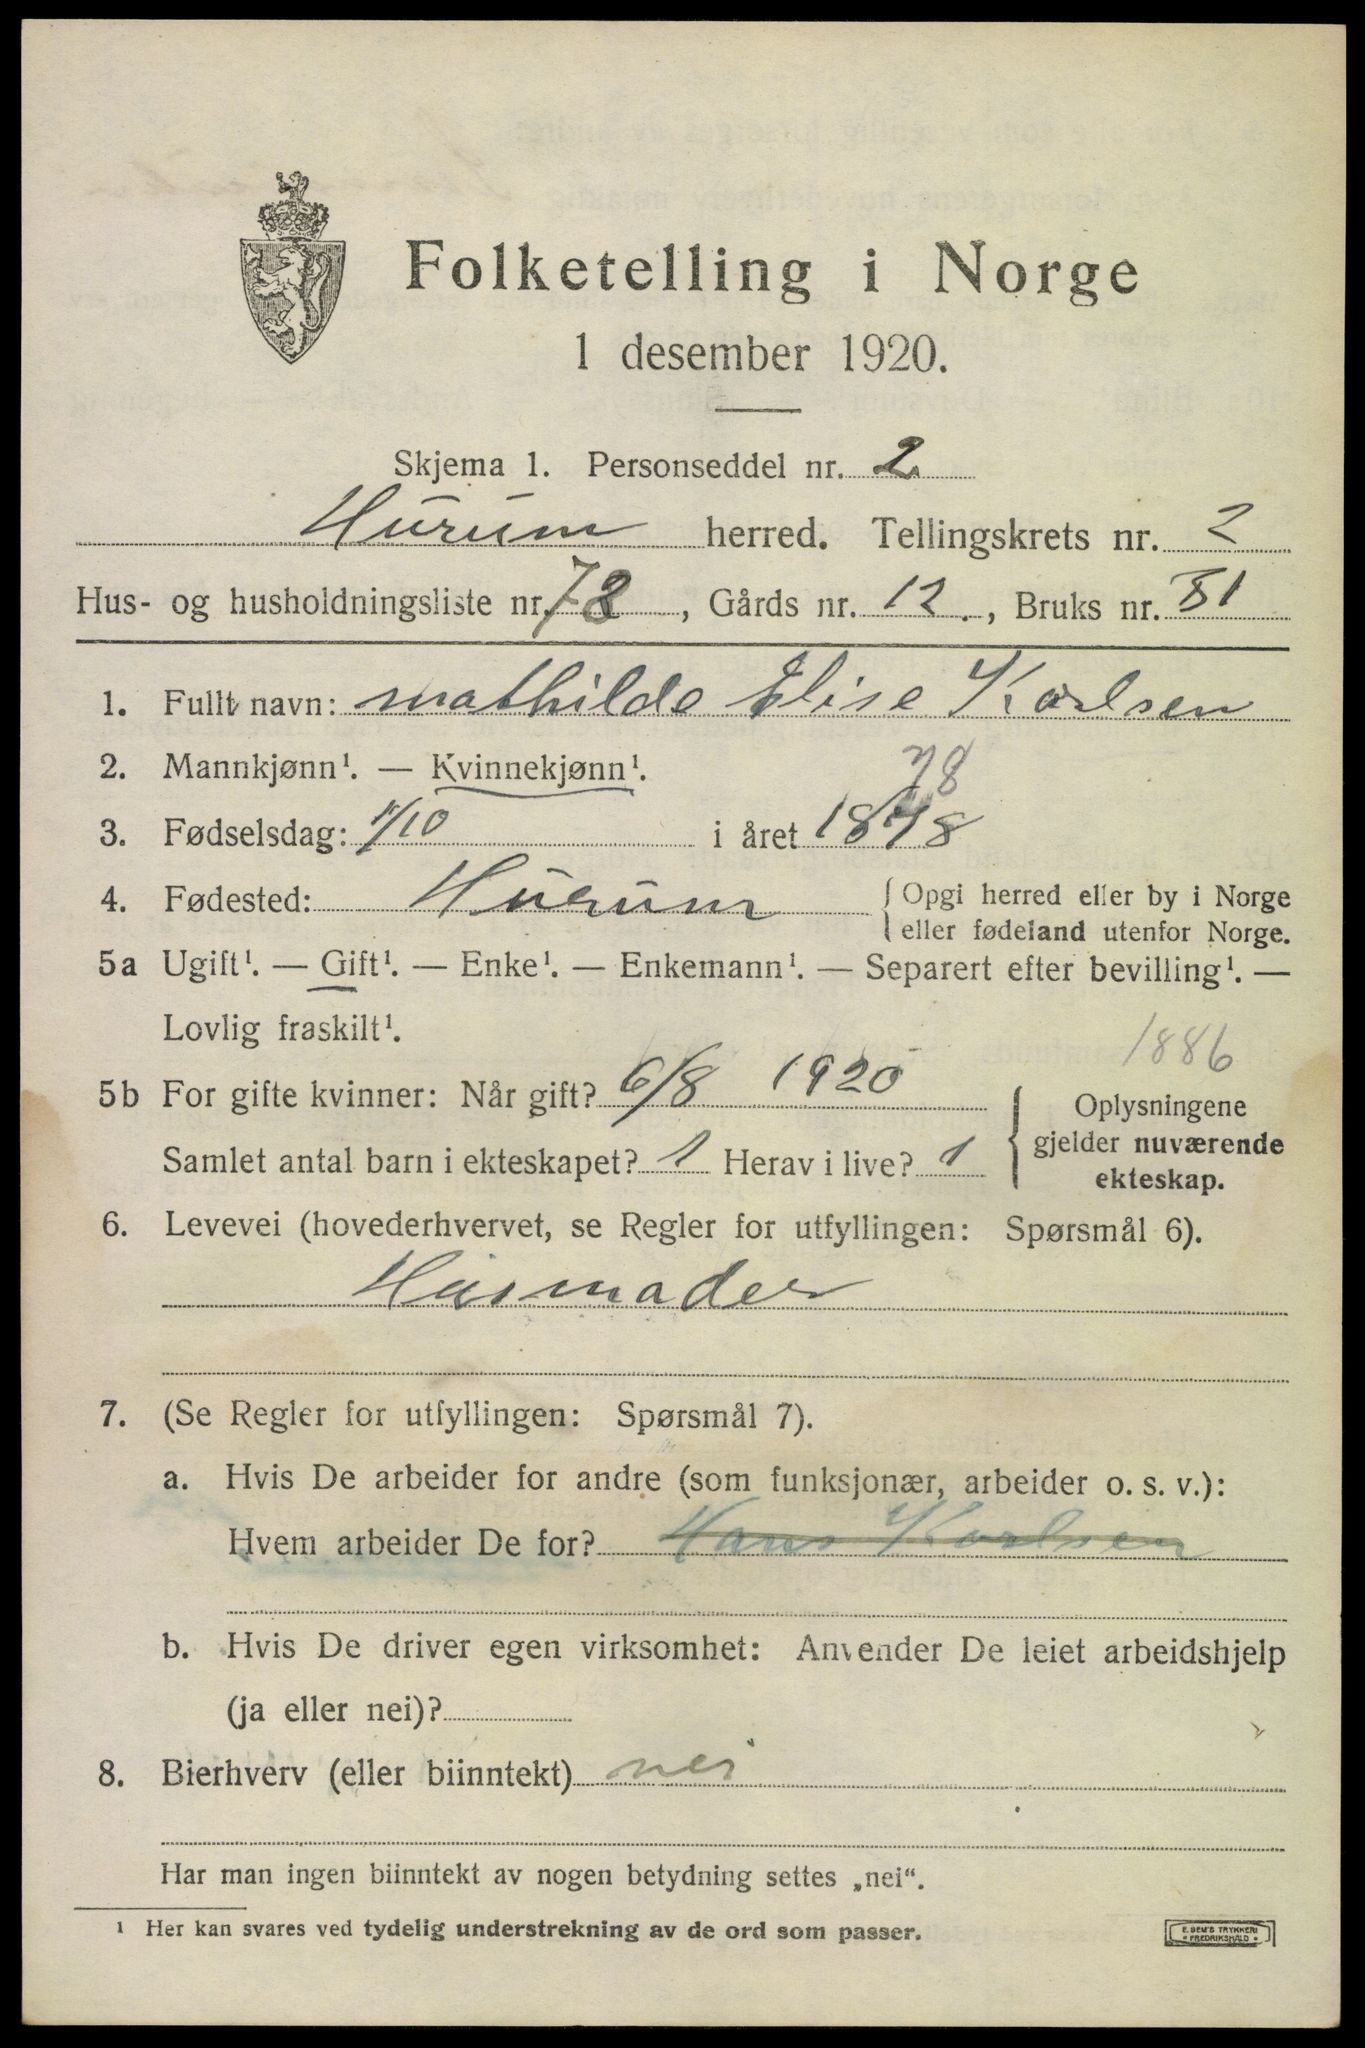 Folketelling i Norge
1 desember 1920.
Skjema 1. Personseddel nr. 2
Hurum herred. Tellingskrets nr. 2
Hus- og husholdningsliste nr. 72, Gårds nr. 12., Bruks nr. 81
1. Fullt navn: Mathilde Elise Karlsen
2. Mannkjønn¹. — Kvinnekjønn¹.
78
3. Fødselsdag: 1/10 i året 1878
4. Fødested: Hurum { Opgi herred eller by i Norge
eller fødeland utenfor Norge.
5a Ugift¹. — Gift¹. — Enke¹. — Enkemann¹. — Separert efter bevilling¹. —
Lovlig fraskilt¹.
1886
5b For gifte kvinner: Når gift? 6/8 1920
Samlet antal barn i ekteskapet? 1 Herav i live? 1
Oplysningene
gjelder nuværende
ekteskap.
6. Levevei (hovederhvervet, se Regler for utfyllingen: Spørsmål 6).
Husmoder
7. (Se Regler for utfyllingen: Spørsmål 7).
a. Hvis De arbeider for andre (som funksjonær, arbeider o. s. v.):
Hvem arbeider De for? Hans Karlsen
b. Hvis De driver egen virksomhet: Anvender De leiet arbeidshjelp
(ja eller nei)?
8. Bierhverv (eller biinntekt) nei
Har man ingen biinntekt av nogen betydning settes „nei“.
¹ Her kan svares ved tydelig understrekning av de ord som passer.
E. SEM'S TRYKKERI
FREDRIKSHALD